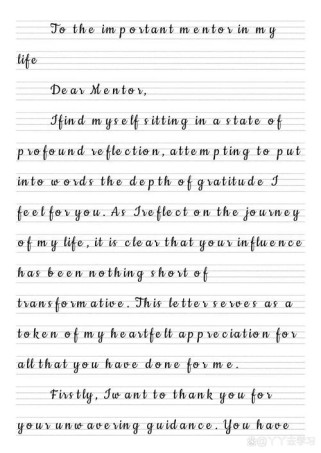 To the important mentor in my
life
Dear Mentor,
I find myself sitting in a state of
profound reflection, attempting to put
into words the depth of gratitude I
feel for you. As I reflect on the journey
of my life, it is clear that your influence
has been nothing short of
transformative. This letter serves as a
token of my heartfelt appreciation for
all that you have done for me.
Firstly, I want to thank you for
your unwavering guidance. You have